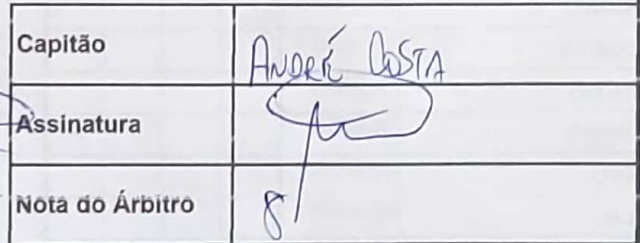 Capitão ANDRÉ COSTA
Assinatura
Nota do Árbitro 8